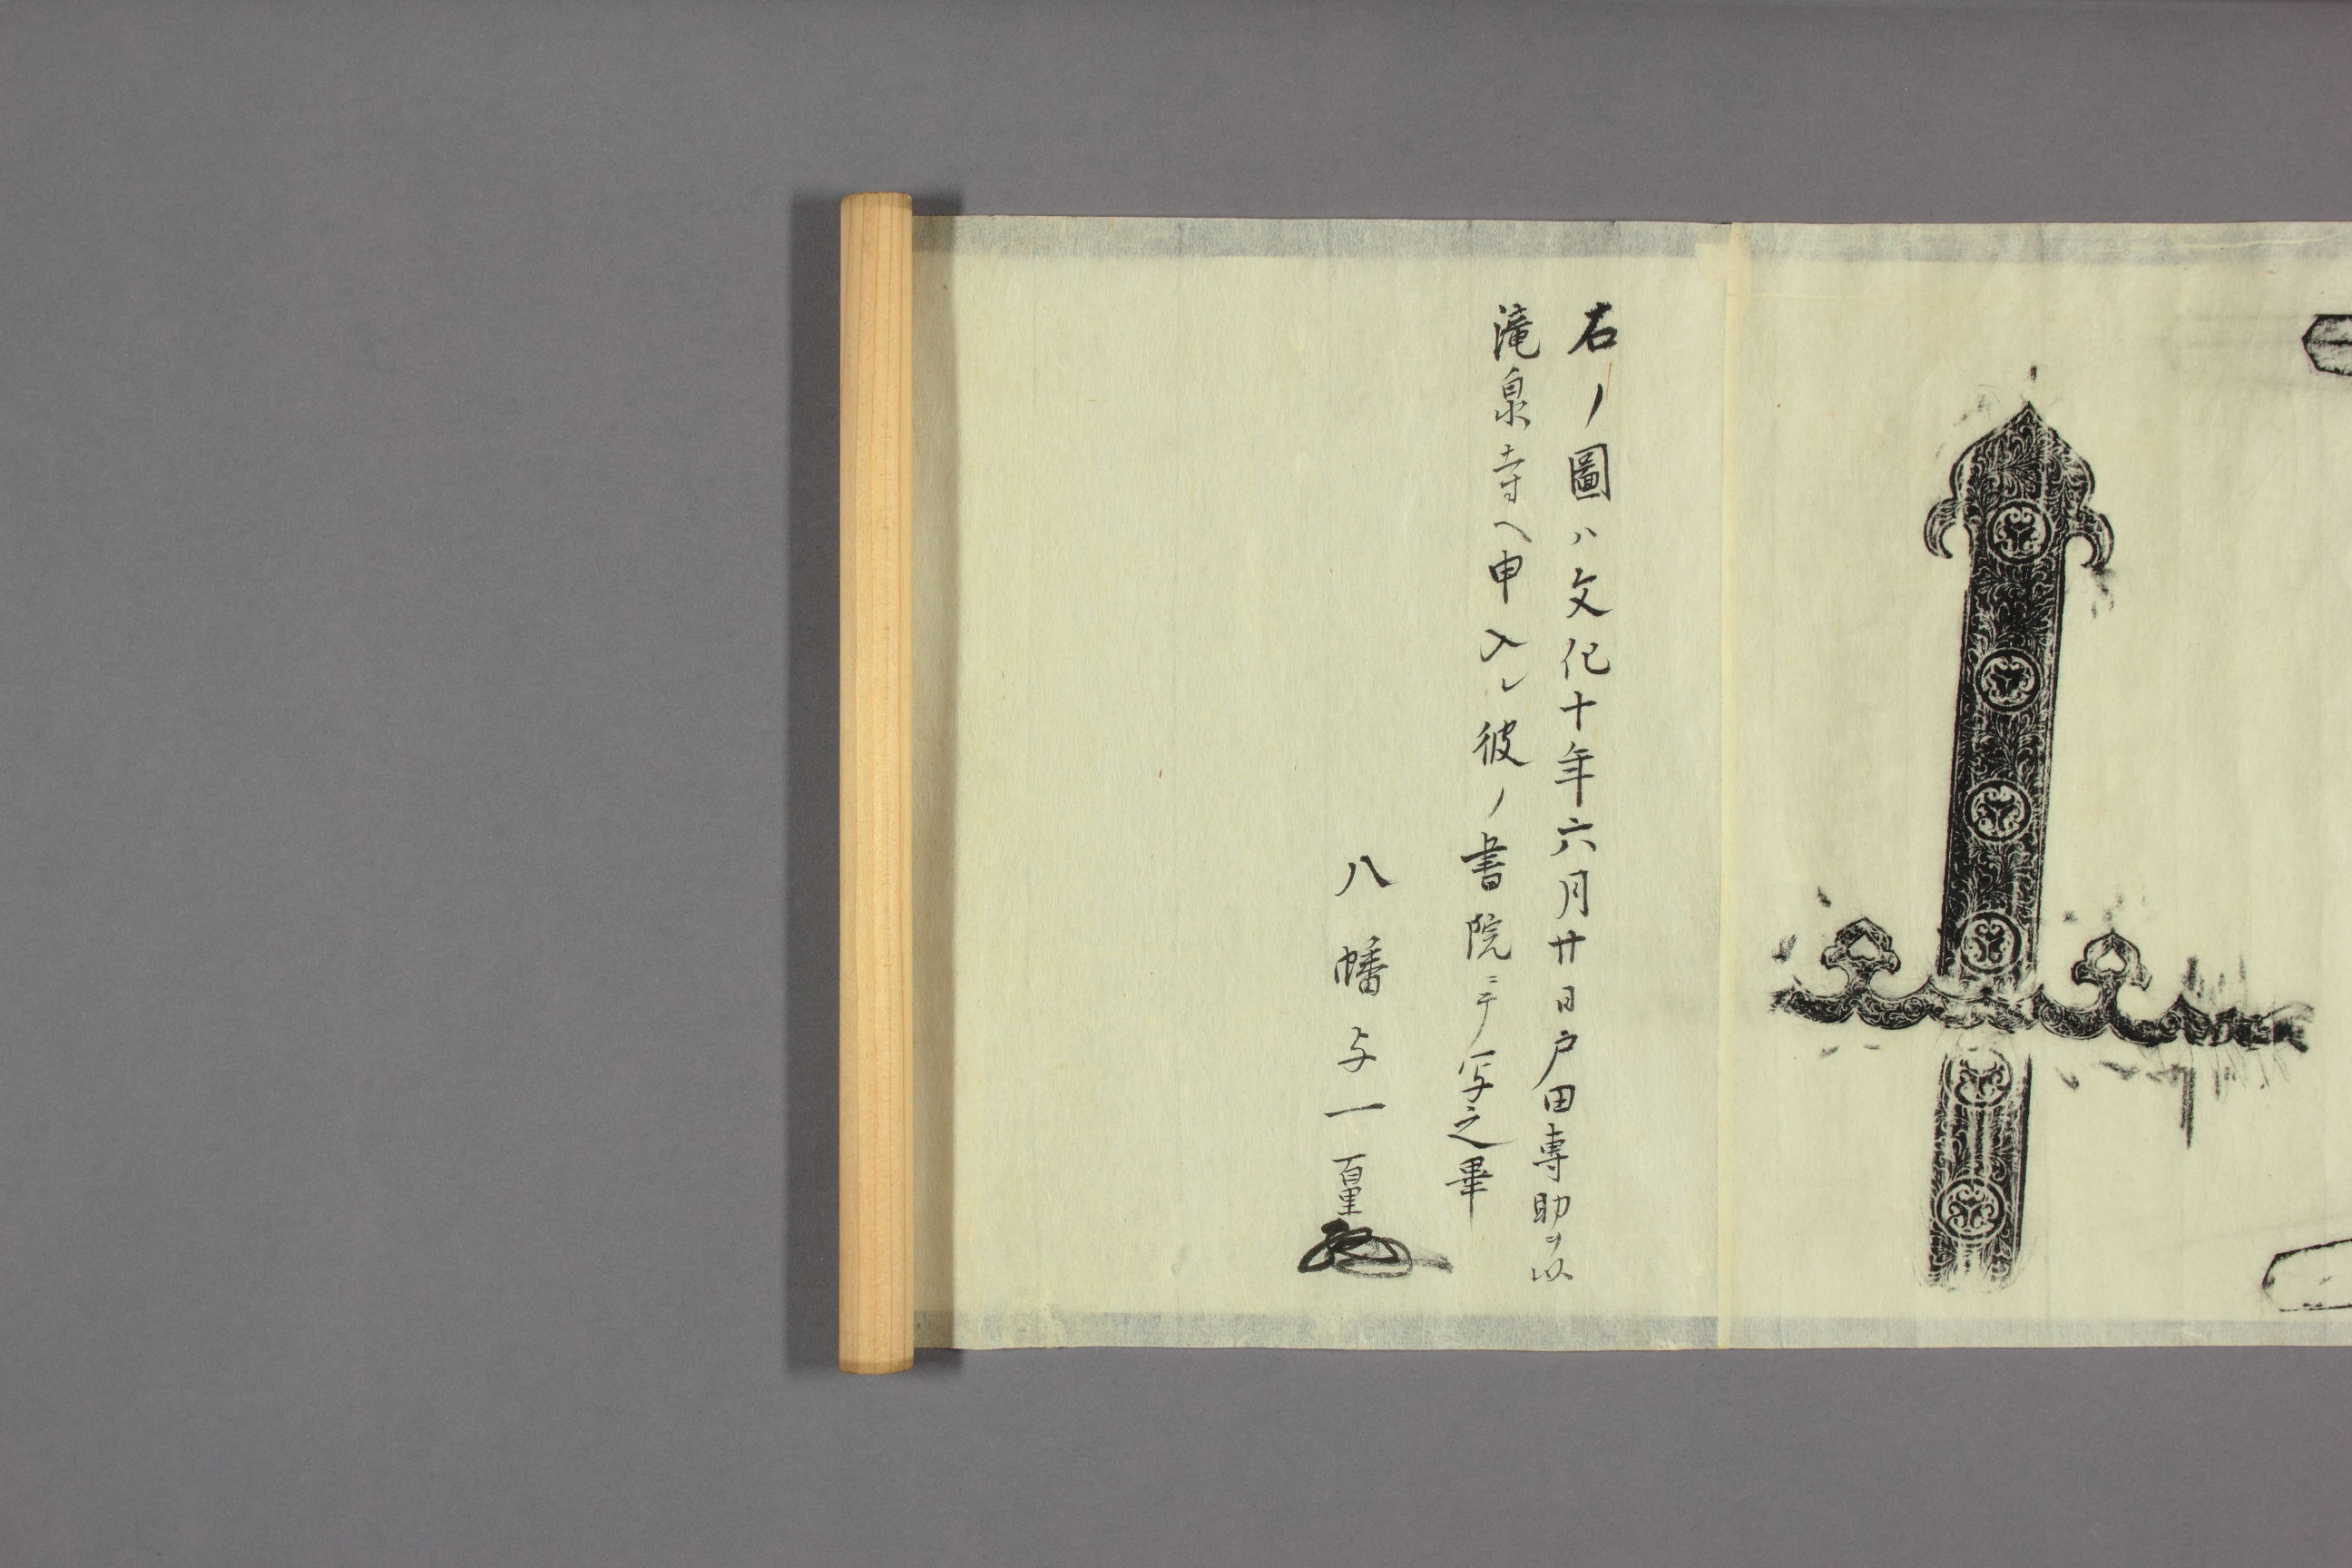 右ノ圖ハ文化十年六月廿日戸田専助ヲ以
滝泉寺ヘ申入レ彼ノ書院ニテ写之畢
八幡与一